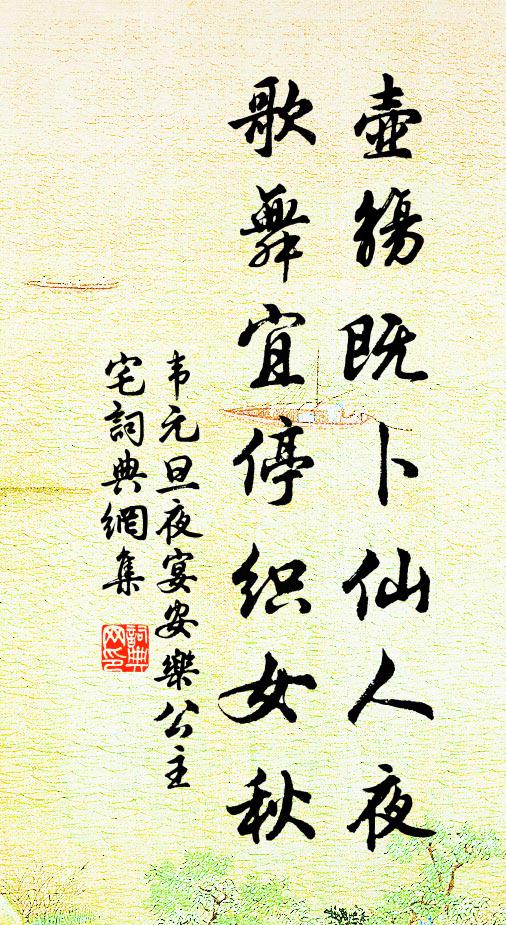 壶觞既卜仙人夜
歌舞宜停织女秋
韦元旦夜宴安樂公主
宅詞典網集
詞典
网印